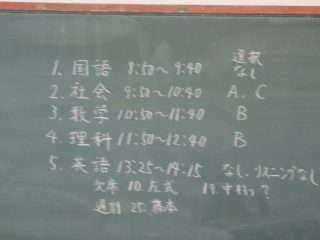 選択
1. 国語 8:50〜9:40 なし
2. 社会 9:50〜10:40 A. C
3. 数学 10:50〜11:40 B
4. 理科 11:50〜12:40 B
5. 英語 13:25〜14:15 なし. リスニングなし
欠席 10. 左式 19. 中村っ?
遅刻 25. 藤本